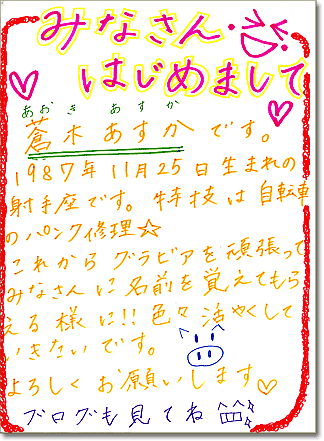 みなさん
はじめまして
あおき あすか
蒼木あすかです。
1987年11月25日生まれの
射手座です。特技は自転車
のパンク修理☆
これからグラビアを頑張って
みなさんに名前を覚えてもら
える様に!!色々活やくして
いきたいです。
よろしくお願いします♡
ブログも見てね